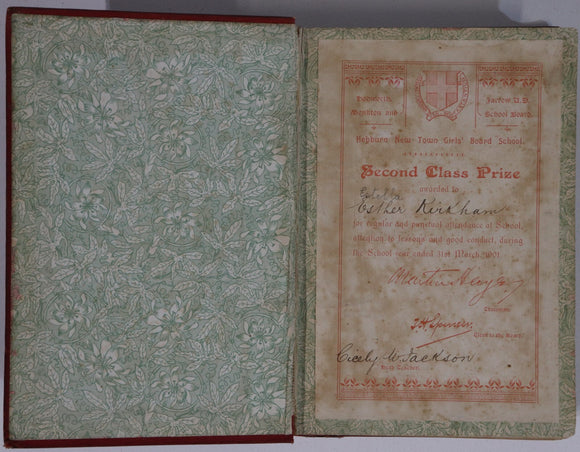 Hedworth, Monkton and
Jarrow U.D. School Board.
Hebburn New Town Girls' Board School.
Second Class Prize
awarded to
Estella
Esther Kirkham
for regular and punctual attendance at School,
attention to lessons and good conduct, during
the School year ended 31st March, 1901.
Chairman.
Clerk to the Board.
Cicely W. Jackson
Head Teacher.